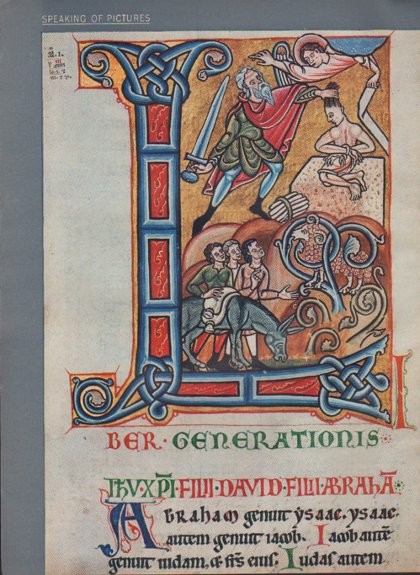 SPEAKING OF PICTURES
L I
BER · GENERATIONIS
IHV · XPI · FILII · DAVID · FILII · ABRAHĀ
ABRAHAM genuit ysaac. ysaac
autem genuit iacob. Iacob autē
genuit iudam, & frs̄ eius. Iudas autem